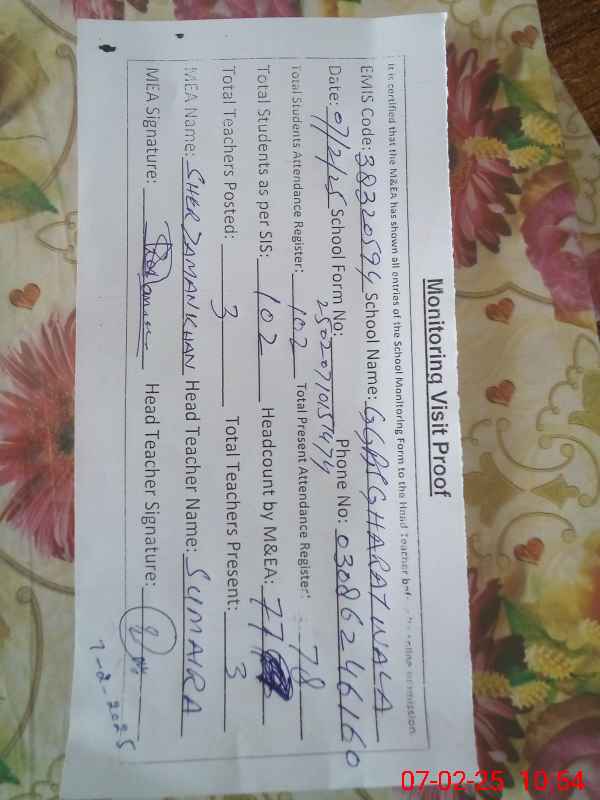 Monitoring Visit Proof
It is certified that the M&EA has shown all entries of the School Monitoring Form to the Head Teacher
EMIS Code: 38320594 School Name: GGPS GHARATWALA
Date: 07/2/25 School Form No: 2502071057474 Phone No: 03086246160
Total Students Attendance Register: 102 Total Present Attendance Register: 78
Total Students as per SIS: 102 Headcount by M&EA: 77
Total Teachers Posted: 3 Total Teachers Present: 3
MEA Name: SHER ZAMAN KHAN Head Teacher Name: SUMAIRA
MEA Signature: Head Teacher Signature:
7-2-2025
07-02-25 10:54